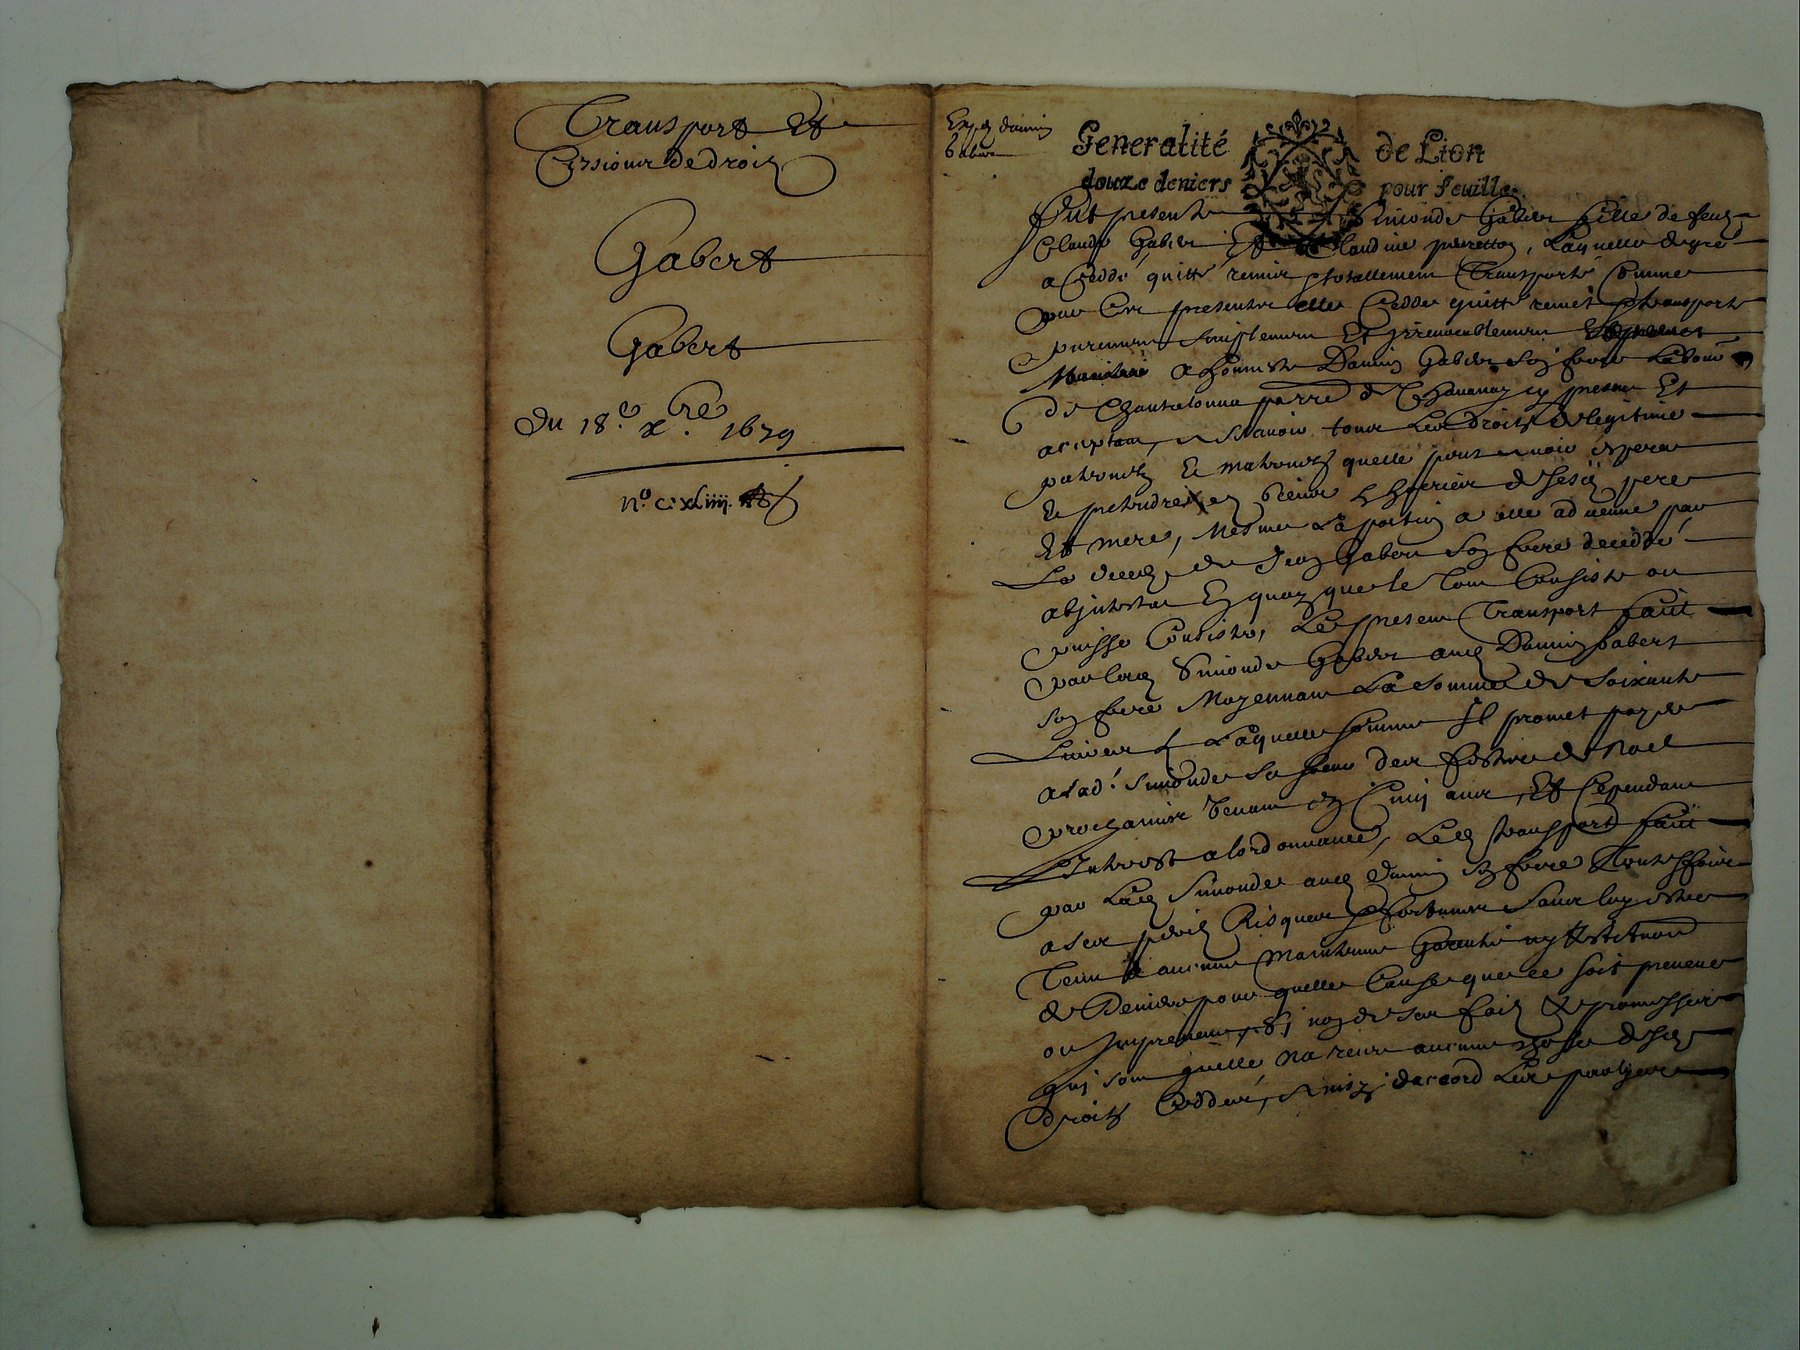 Transport Et
Cessionr de droitz
Gabert
Gabert
du 18.e x.bre 1679
n.o c.xliiij.
Generalité de Lion
douze deniers pour feuille
fut presente Simonde Gabert fille de feuz
Claude Gabert Et Claudine laquelle de gré
a Ceddé quitté remis totallement Transporté Comme
par Ces presenter elle Cedde quitte remet transporte
purement simplement Et jrreuocablement
a honneste Damien Gabert son frere
de parre de Chauanay cy present Et
acceptant, a scauoir tour Les droitz de legitime
paternelz Et maternelz quelle peut auoir esperer
Et pretendre en de sesd pere
Et mere, Mesme La portion a elle aduenue par
Le deced de Jean Gabert son frere decedé
abjntestat En quoy que le tout Consiste ou
puisse Consister, Le present Transport faict
par lad Simonde Gabert aud Damien Gabert
son frere Moyennant La somme de soixante
Liures Laquelle somme Il promet payer
a lad. Simonde sa seur der festes de Noel
prochainer Venant en Cinq anr, Et Cependant
Linterest a lordonnance, Led transport faict
par Lad Simonde aud Damien son frere Toutesfoir
a ser perilz Risquer fortuner sanr luy estre
Tenue a aucune Maintenue Garentie ny Restitution
de Denierr pour quelle Cause que ce soit preueue
ou Impreueue, Si non de ser faitz promesser
qui sont quelle na aucune chose desd
droitz Ceddér, accord Les partyer